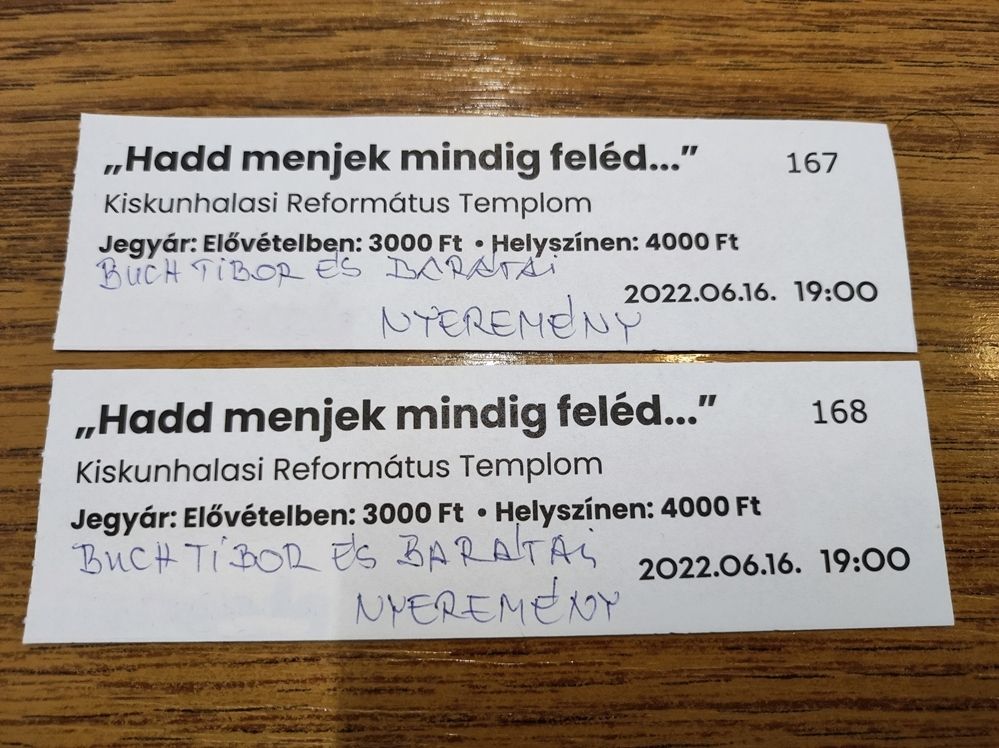 „Hadd menjek mindig feléd..." 167
Kiskunhalasi Református Templom
Jegyár: Elővételben: 3000 Ft • Helyszínen: 4000 Ft
BUCH TIBOR ÉS BARÁTAI
2022.06.16. 19:00
NYEREMÉNY
„Hadd menjek mindig feléd..." 168
Kiskunhalasi Református Templom
Jegyár: Elővételben: 3000 Ft • Helyszínen: 4000 Ft
BUCH TIBOR ÉS BARÁTAI
2022.06.16. 19:00
NYEREMÉNY